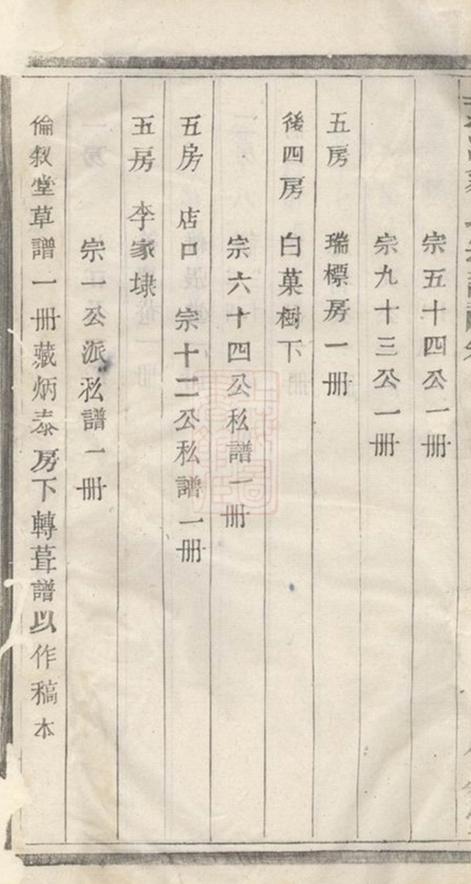 宗五十四公一册
宗九十三公一册
五房　瑞標房一册
後四房　白菓樹下
宗六十四公私譜一册
五房　店口　宗十二公私譜一册
五房　李家埭
宗一公派私譜一册
倫敘堂草譜一册藏炳泰房下轉葺譜以作稿本